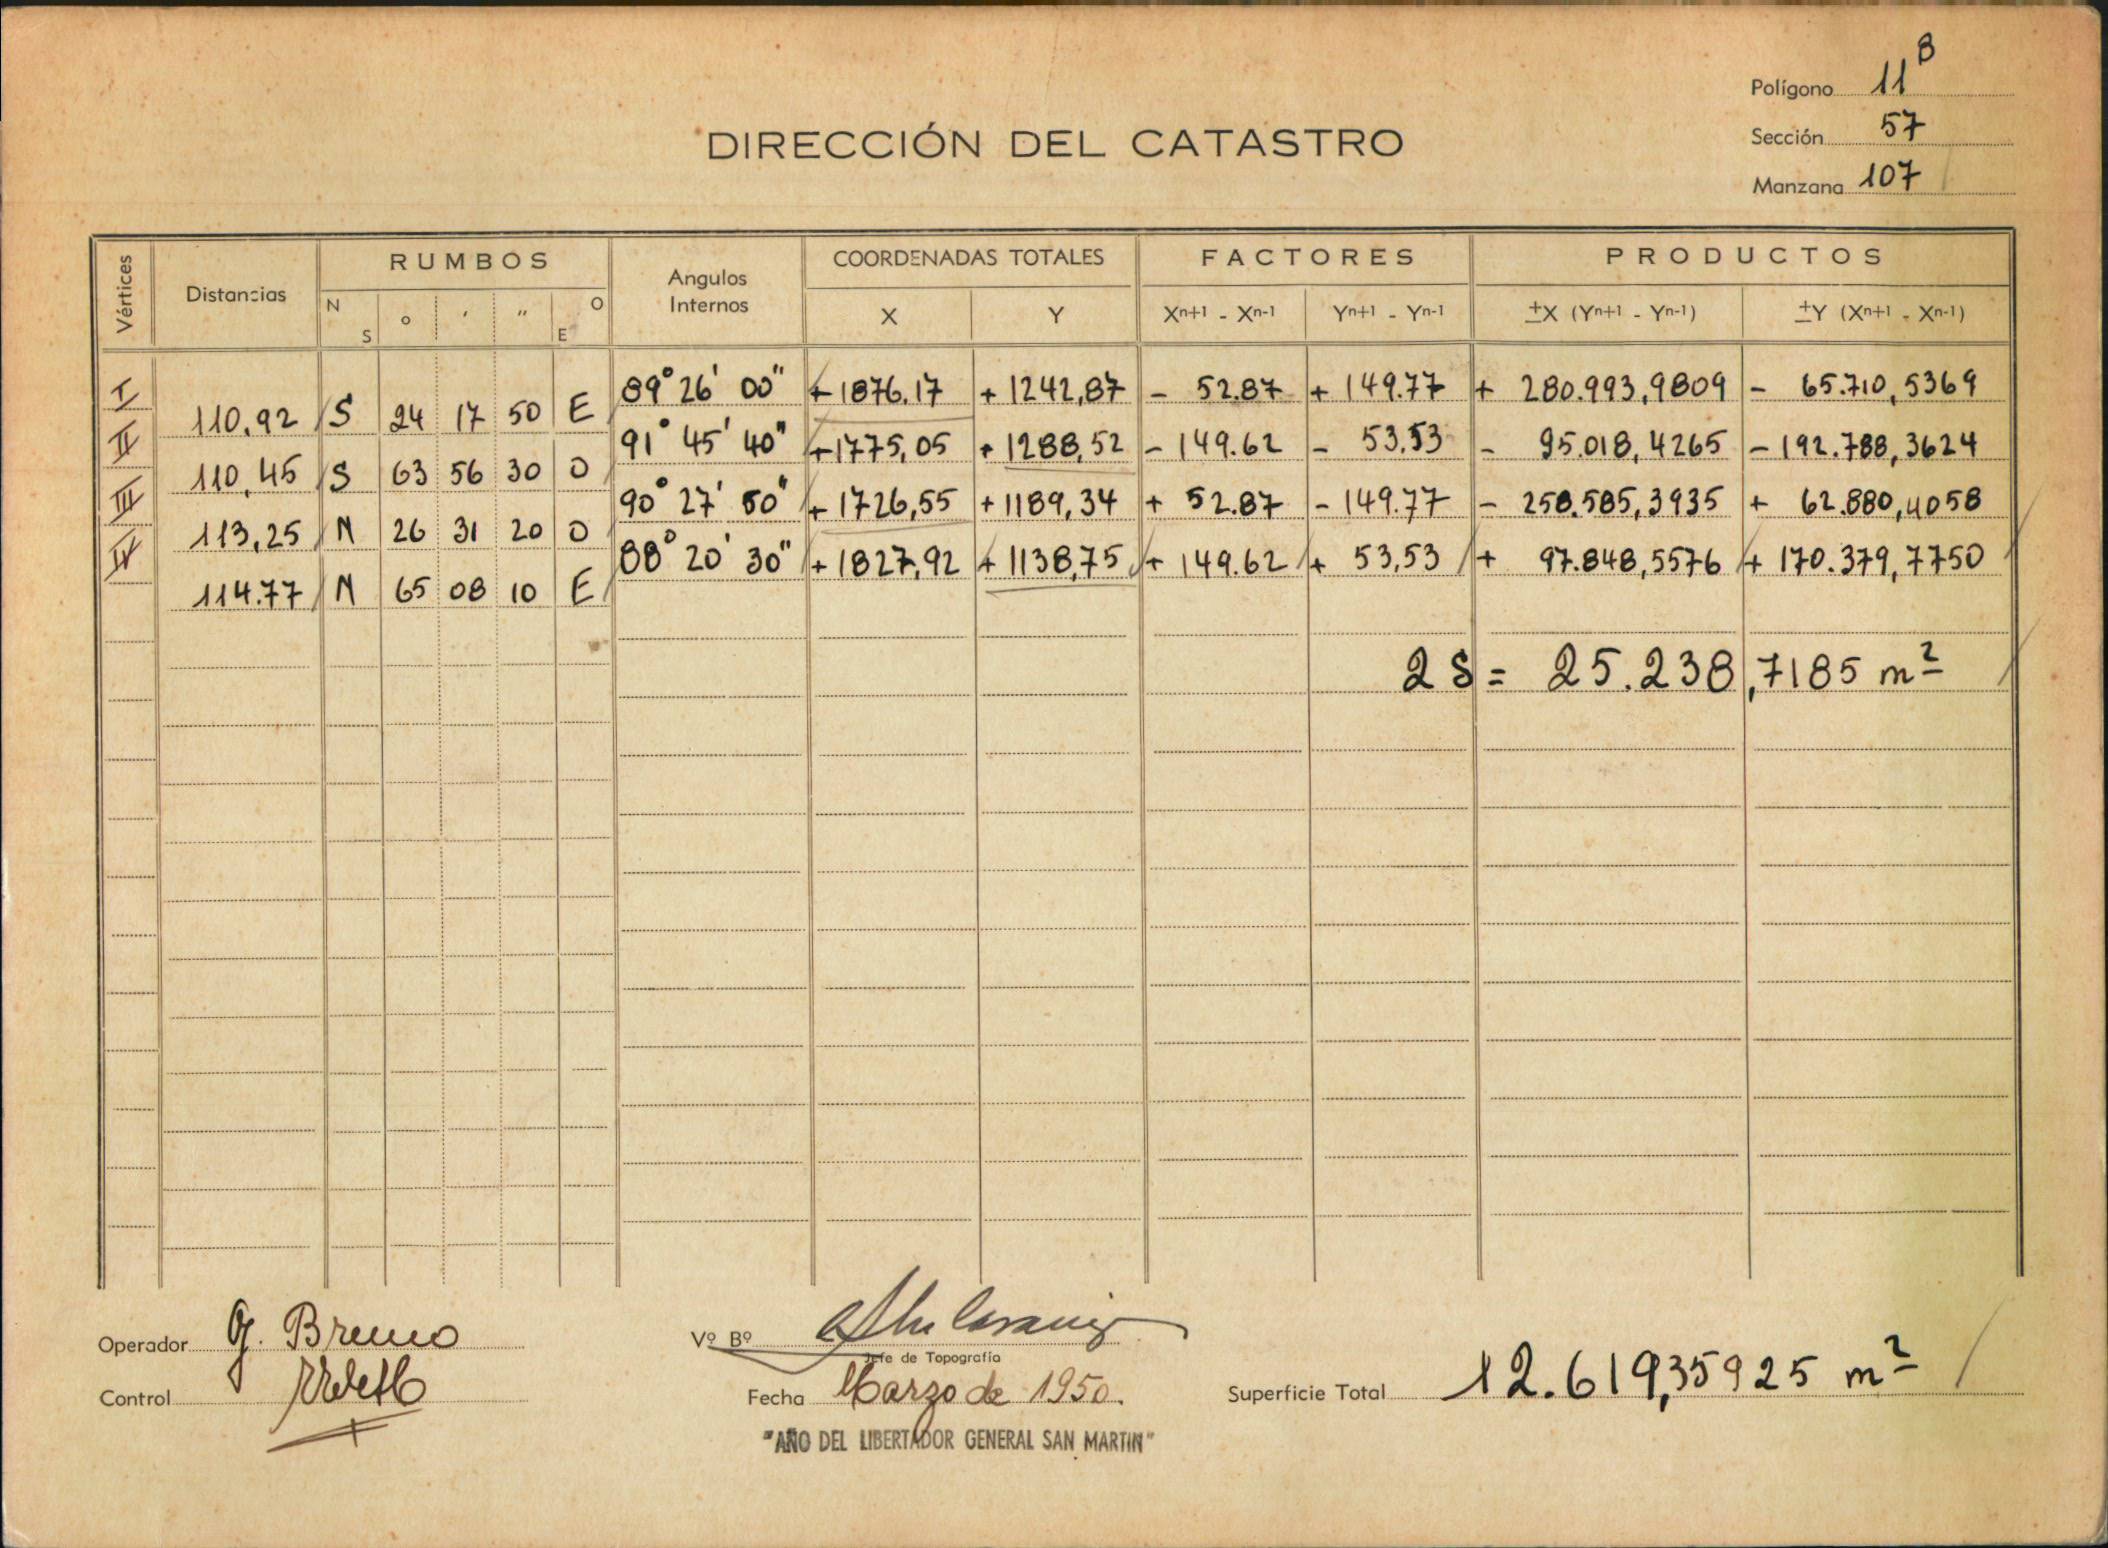 Polígono 11 B
Sección 57
Manzana 107
DIRECCIÓN DEL CATASTRO
Vértices Distancias RUMBOS Angulos Internos COORDENADAS TOTALES FACTORES PRODUCTOS
N S o ' " E O X Y Xn+1 - Xn-1 Yn+1 - Yn-1 ±X (Yn+1 - Yn-1) ±Y (Xn+1 - Xn-1)
I 89° 26' 00" + 1876.17 + 1242,87 - 52.87 + 149.77 + 280.993,9809 - 65.710,5369
110.92 S 24 17 50 E
II 91° 45' 40" + 1775,05 + 1288,52 - 149.62 - 53,53 - 95.018,4265 - 192.788,3624
110,45 S 63 56 30 O
III 90° 27' 50" + 1726,55 + 1189,34 + 52.87 - 149.77 - 258.585,3935 + 62.880,4058
113,25 N 26 31 20 O
IV 88° 20' 30" + 1827,92 + 1138,75 + 149.62 + 53,53 + 97.848,5576 + 170.379,7750
114.77 N 65 08 10 E
2 S = 25.238,7185 m²
Operador G. Bruno
Vº Bº
Jefe de Topografía
Control
Fecha Marzo de 1950.
Superficie Total 12.619,35925 m²
"AÑO DEL LIBERTADOR GENERAL SAN MARTIN"